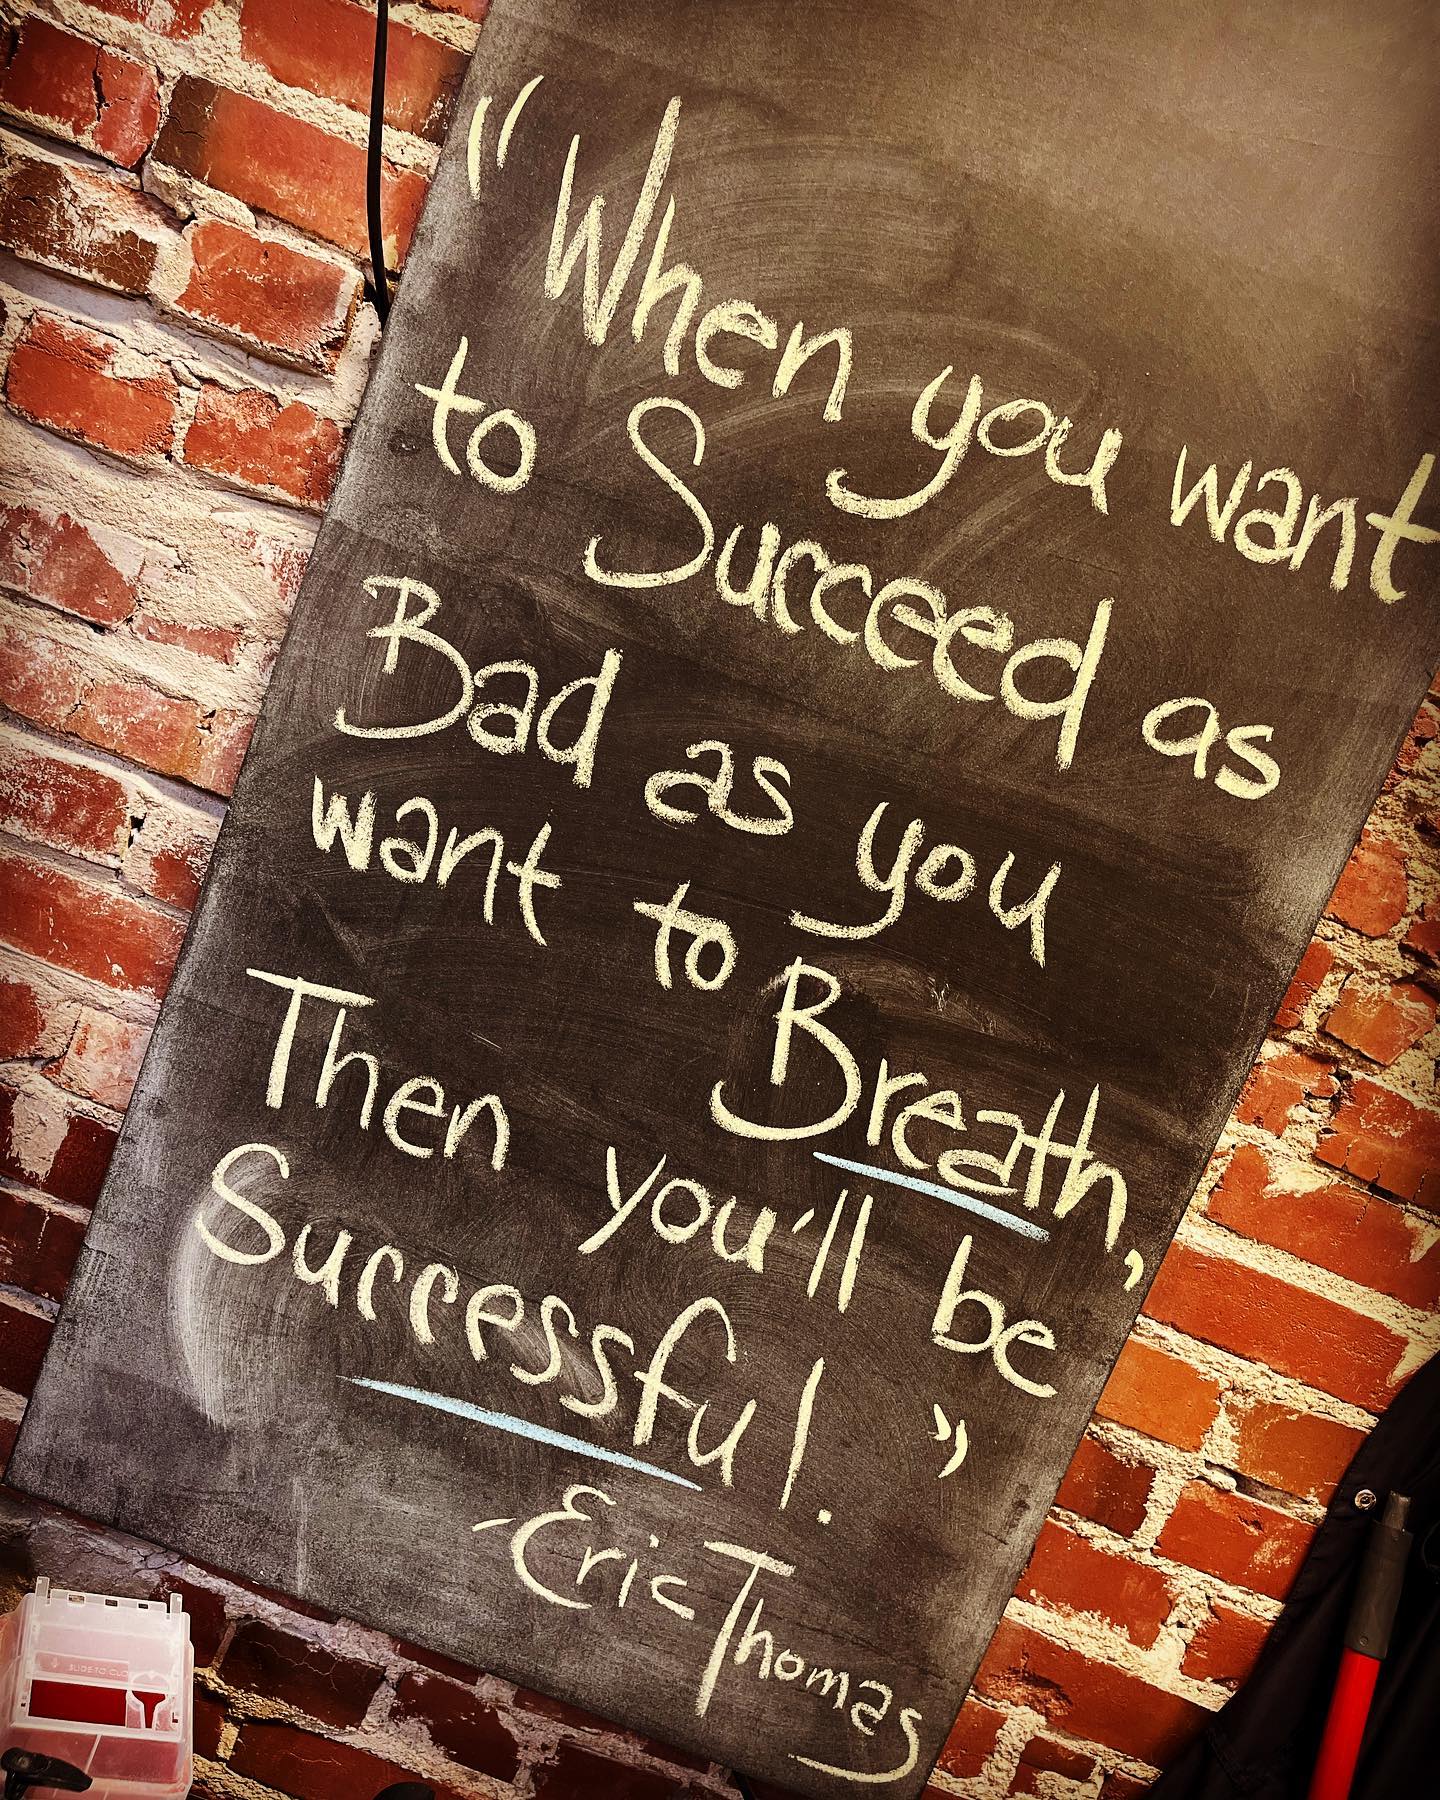 "When you want
to Succeed as
Bad as you
want to Breath,
Then you'll be
Successful!"
-Eric Thomas
SLIDE TO CLO